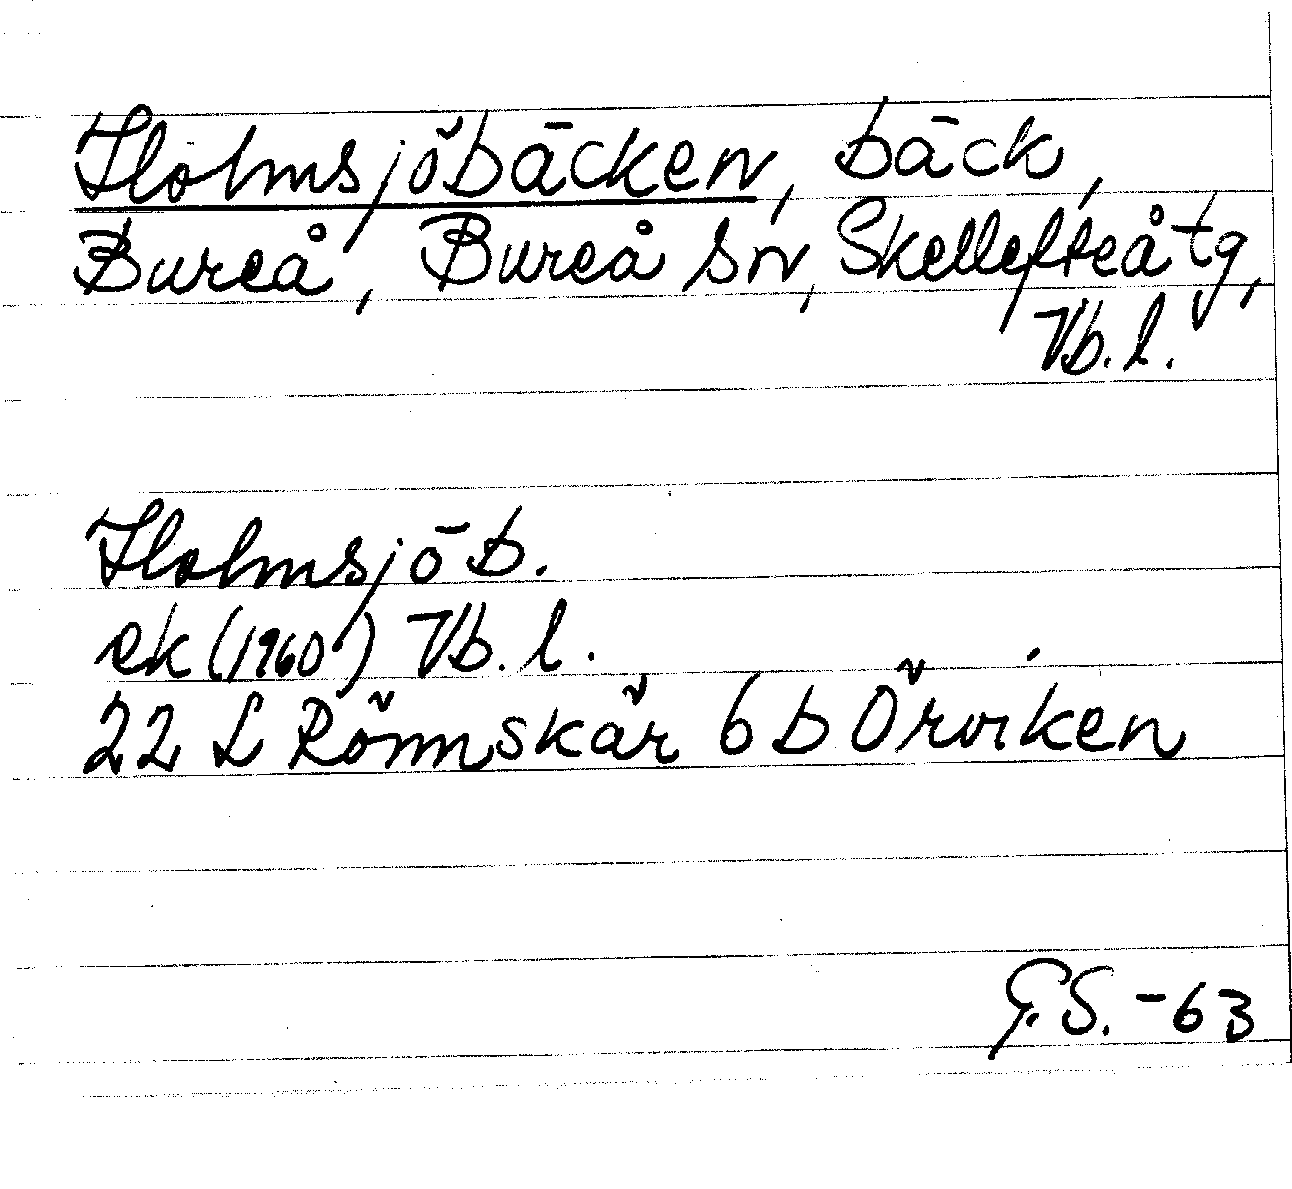 Holmsjöbäcken, bäck,
Bureå, Bureå sn, Skellefteå tg,
Vb. l.
Holmsjöb.
ek (1960) Vb. l.
22 L Rönnskär 6 b Örviken
G.S. -63